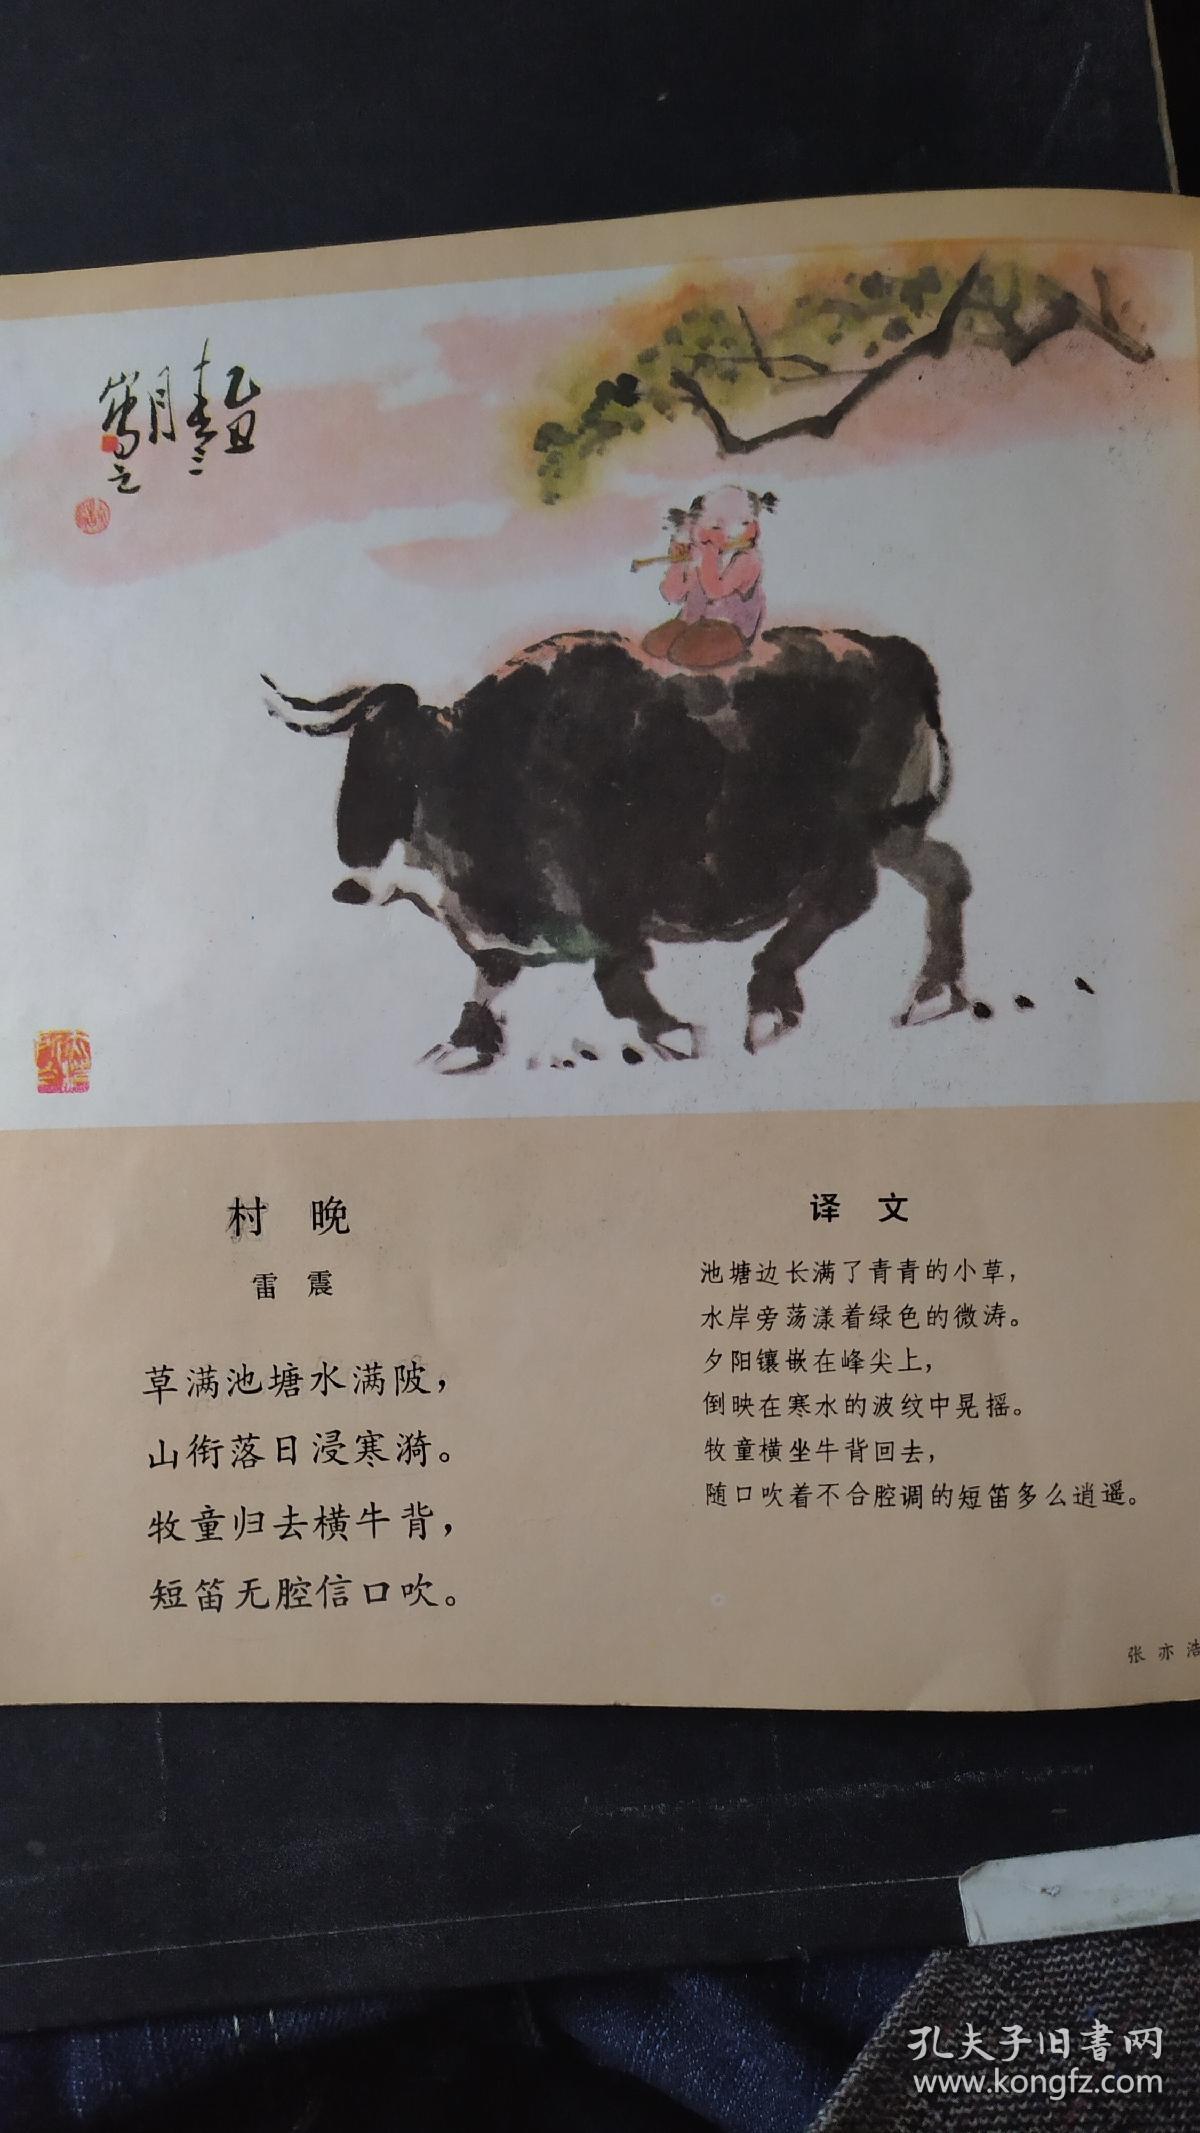 乙丑
春三
月
村 晚
雷 震
草满池塘水满陂，
山衔落日浸寒漪。
牧童归去横牛背，
短笛无腔信口吹。
译 文
池塘边长满了青青的小草，
水岸旁荡漾着绿色的微涛。
夕阳镶嵌在峰尖上，
倒映在寒水的波纹中晃摇。
牧童横坐牛背回去，
随口吹着不合腔调的短笛多么逍遥。
张亦浩
孔夫子旧書网
www.kongfz.com